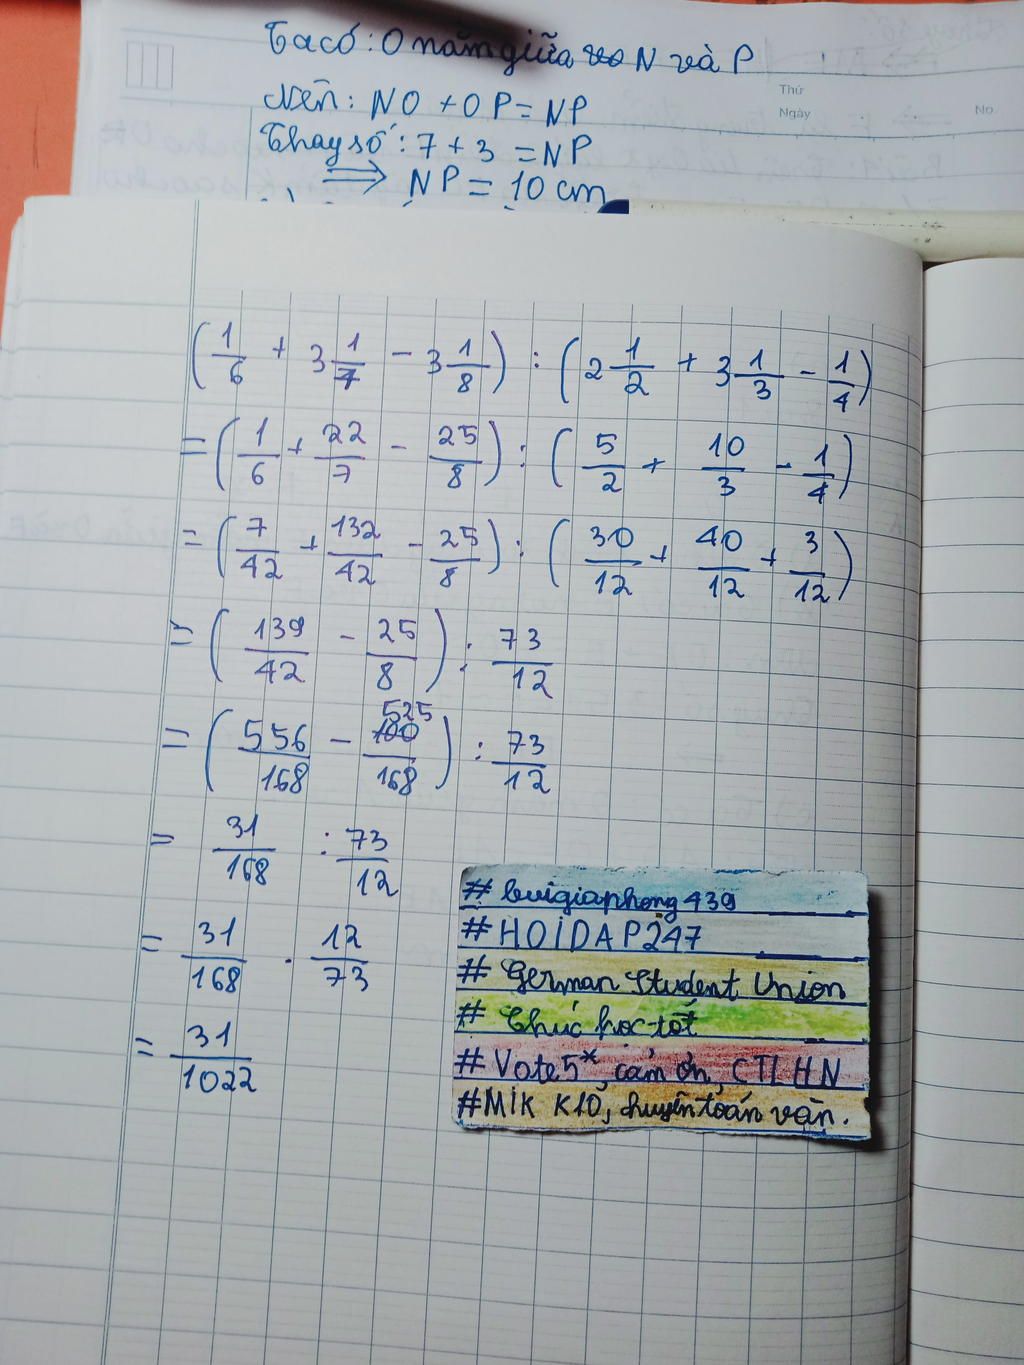 Ta có: O nằm giữa N và P
Nên: NO + OP = NP
Thay số: 7 + 3 = NP
⟹ NP = 10 cm
Thứ
Ngày
No.
(1/6 + 3 1/7 - 3 1/8) : (2 1/2 + 3 1/3 - 1/4)
= (1/6 + 22/7 - 25/8) : (5/2 + 10/3 - 1/4)
= (7/42 + 132/42 - 25/8) : (30/12 + 40/12 + 3/12)
= (139/42 - 25/8) : 73/12
= (556/168 - 525/168) : 73/12
= 31/168 : 73/12
= 31/168 . 12/73
= 31/1022
# buigiaphong439
# HOIDAP247
# German Student Union
# Chúc học tốt
# Vote 5*, cảm ơn, CTLHN
#MIK K10, chuyên toán văn.